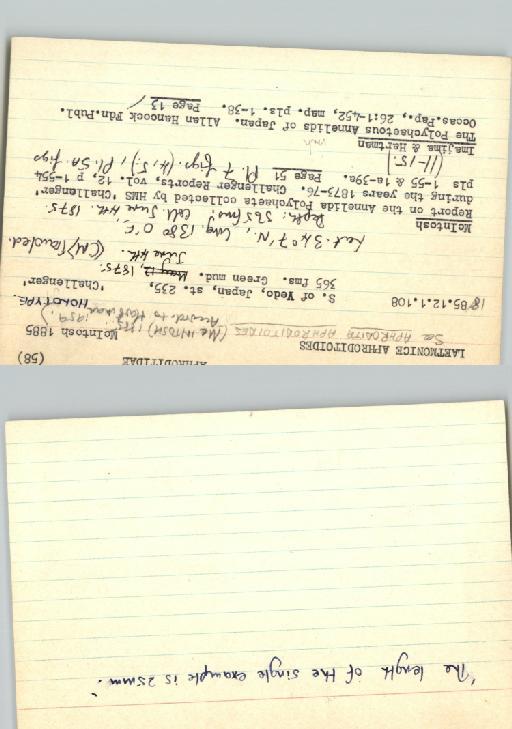 APHRODITIDAE (58)
LAETMONICE APHRODITOIDES McIntosh 1885
See APHRODITA APHRODITOIDES (McINTOSH) 1885
According to Hartman 1959.)
1885.12.1.108 S. of Yedo, Japan, st. 235, 'Challenger' HOLOTYPE.
365 fms. Green mud. May, 12, 1875.
June 4th. (CM) Rawled.
Lat. 34° 7' N., Long. 138° 0' E,
Depth, 565 fms! Coll. June 4th. 1875.
McIntosh
Report on the Annelida Polychaeta collected by HMS 'Challenger'
during the years 1873-76. Challenger Reports. vol. 12, p 1-554
pls 1-55 & 1a-39a. Page 51 Pl. 7 figs. (4, 5.), Pl. 5A figs
(11-15)
Imajima & Hartman
The Polychaetous Annelids of Japan. Allan Hancock Fdn.Publ.
Occas.Pap., 26:1-452, map, pls. 1-38. Page 13
"The length of the single example is 25mm."